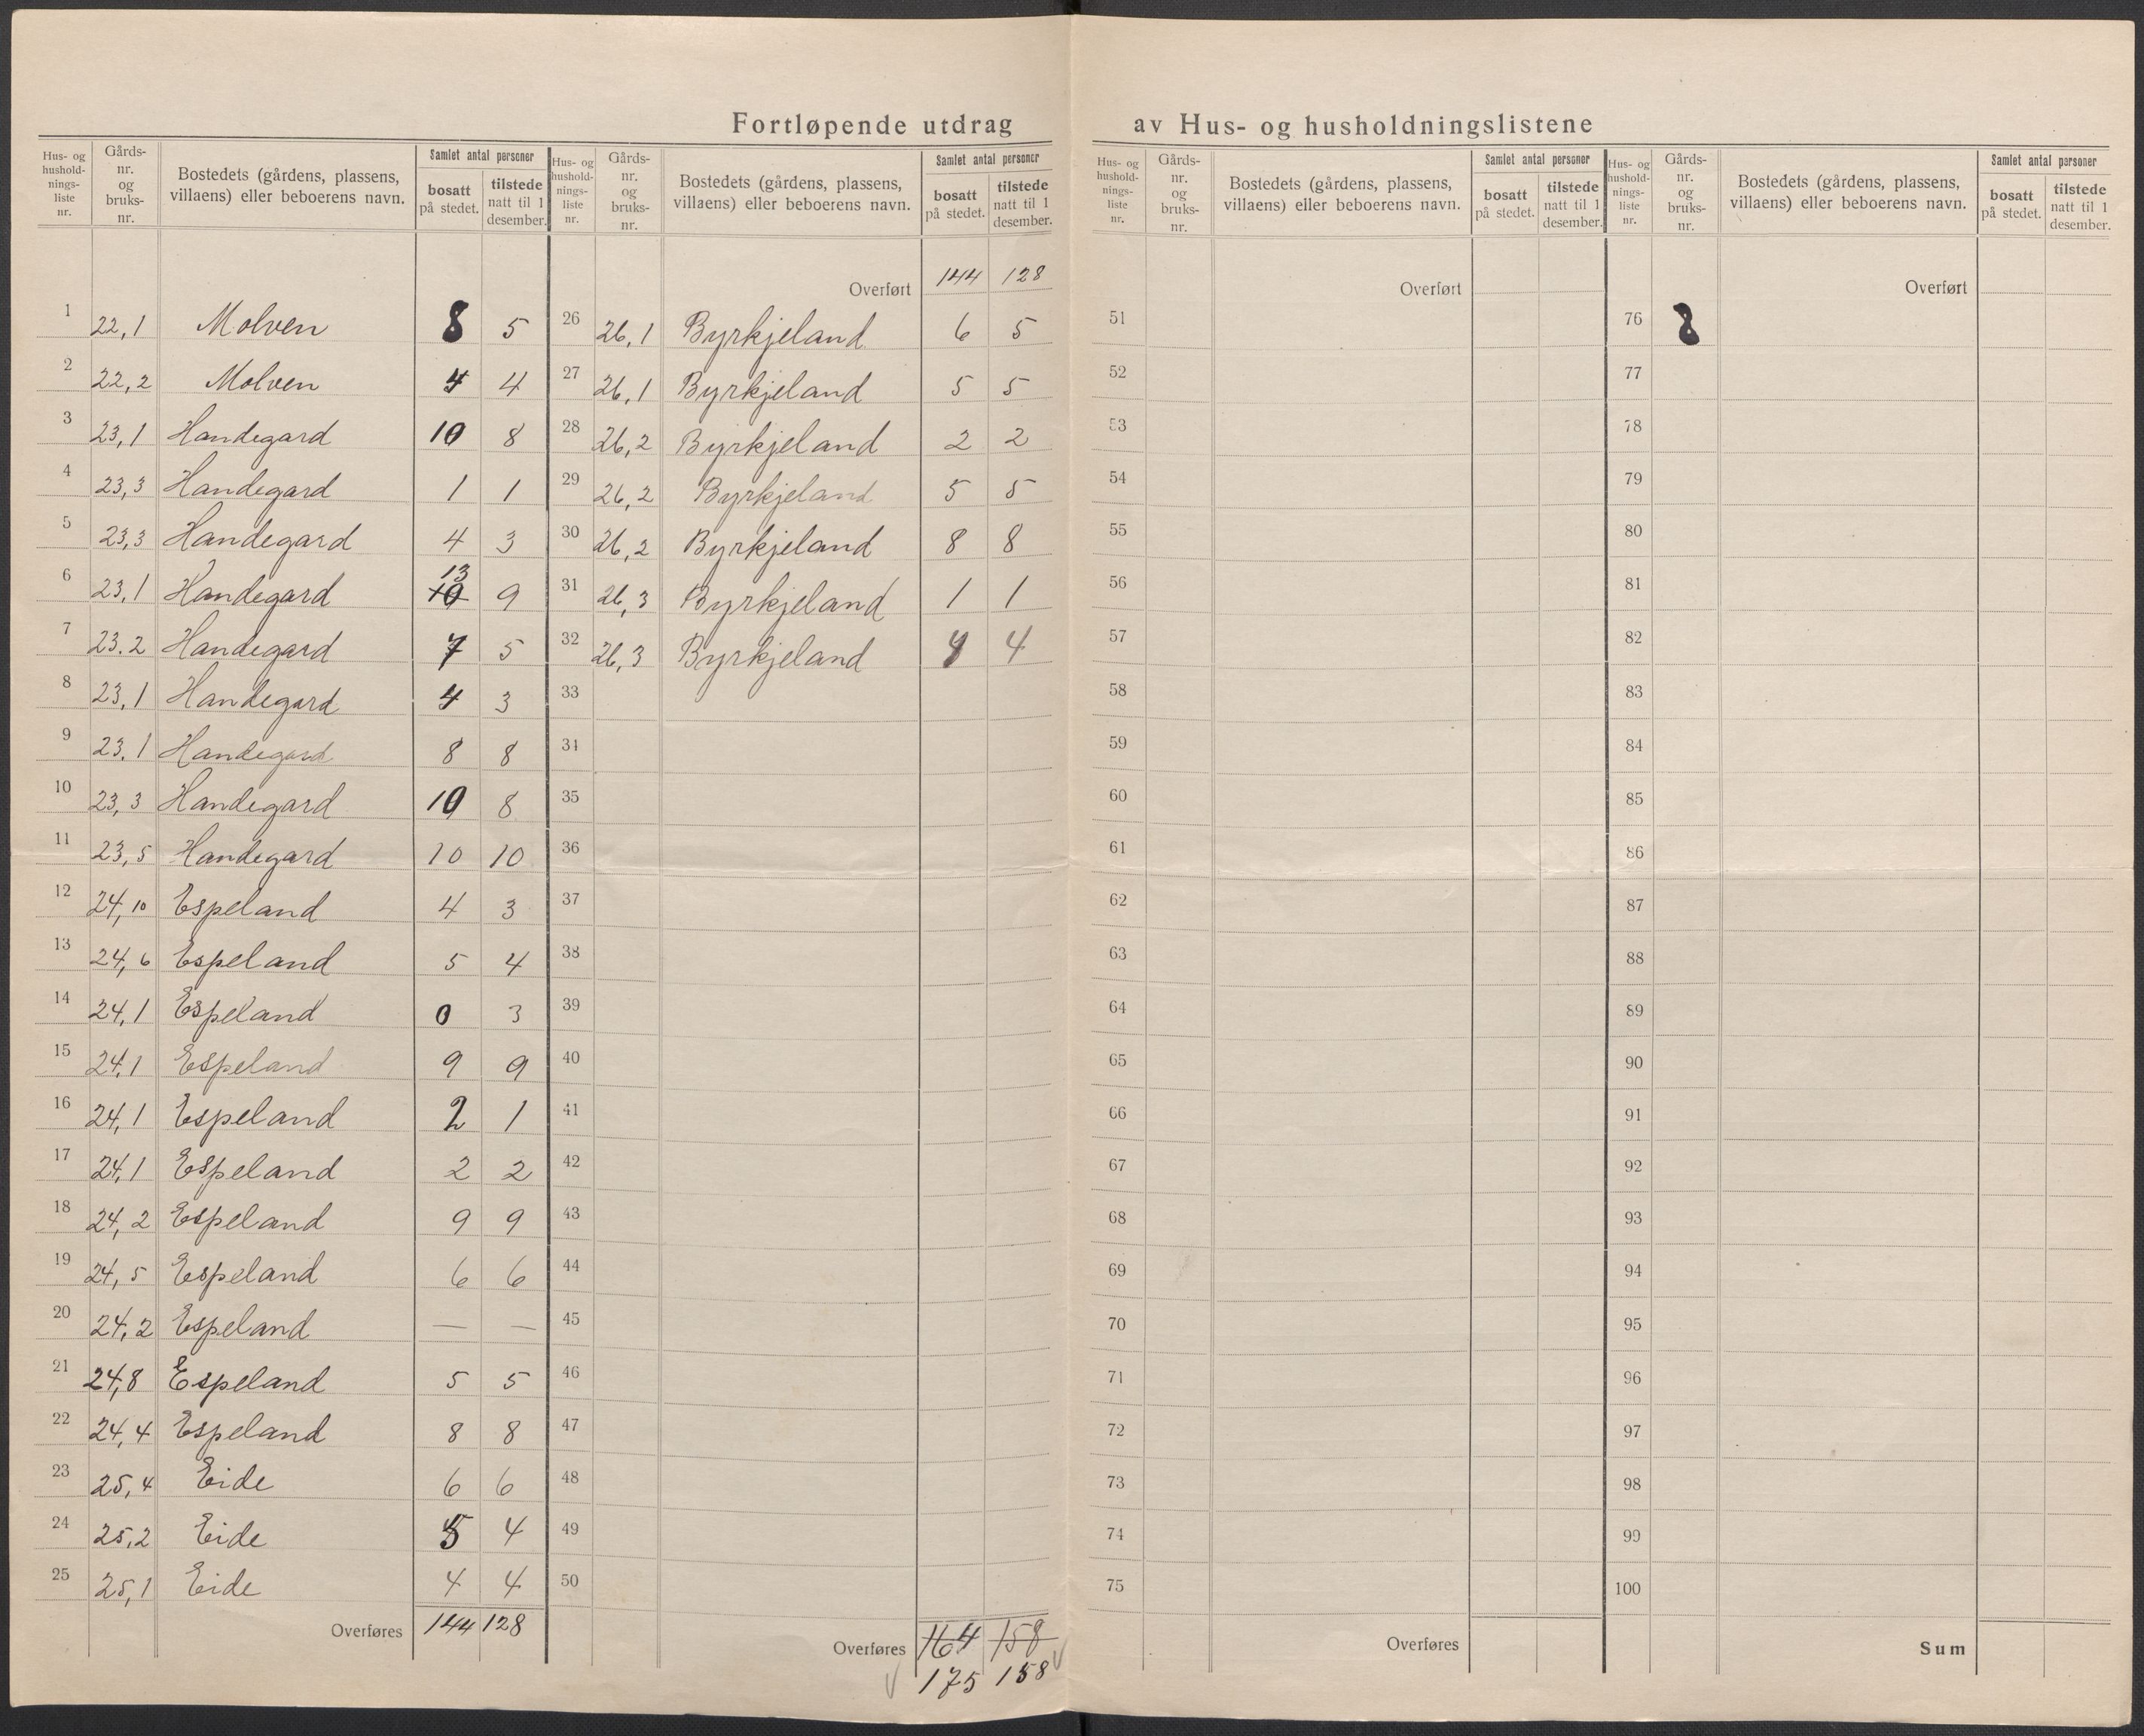 Fortløpende utdrag av Hus- og husholdningslistene
Hus- og husholdnings-liste nr. Gårds-nr. og bruks-nr. Bostedets (gårdens, plassens, villaens) eller beboerens navn. Samlet antal personer bosatt på stedet. tilstede natt til 1 desember.
1 22,1 Molven 8 5
2 22,2 Molven 4 4
3 23,1 Handegard 10 8
4 23,3 Handegard 1 1
5 23,3 Handegard 4 3
6 23,1 Handegard 10 13 9
7 23.2 Handegard 7 5
8 23,1 Handegard 4 3
9 23.1 Handegard 8 8
10 23,3 Handegard 10 8
11 23,5 Handegard 10 10
12 24,10 Espeland 4 3
13 24,6 Espeland 5 4
14 24,1 Espeland 0 3
15 24,1 Espeland 9 9
16 24,1 Espeland 2 1
17 24,1 Espeland 2 2
18 24,2 Espeland 9 9
19 24,5 Espeland 6 6
20 24,2 Espeland — —
21 24,8 Espeland 5 5
22 24,4 Espeland 8 8
23 25,4 Eide 6 6
24 25,2 Eide 5 4
25 25,1 Eide 4 4
Overføres 144 128
Hus- og husholdnings-liste nr. Gårds-nr. og bruks-nr. Bostedets (gårdens, plassens, villaens) eller beboerens navn. Samlet antal personer bosatt på stedet. tilstede natt til 1 desember.
Overført 144 128
26 26,1 Byrkjeland 6 5
27 26,1 Byrkjeland 5 5
28 26,2 Byrkjeland 2 2
29 26,2 Byrkjeland 5 5
30 26,2 Byrkjeland 8 8
31 26,3 Byrkjeland 1 1
32 26,3 Byrkjeland 4 4
33
34
35
36
37
38
39
40
41
42
43
44
45
46
47
48
49
50
Overføres 164 158
175 158
Hus- og husholdnings-liste nr. Gårds-nr. og bruks-nr. Bostedets (gårdens, plassens, villaens) eller beboerens navn. Samlet antal personer bosatt på stedet. tilstede natt til 1 desember.
Overført
51
52
53
54
55
56
57
58
59
60
61
62
63
64
65
66
67
68
69
70
71
72
73
74
75
Overføres
Hus- og husholdnings-liste nr. Gårds-nr. og bruks-nr. Bostedets (gårdens, plassens, villaens) eller beboerens navn. Samlet antal personer bosatt på stedet. tilstede natt til 1 desember.
Overført
76 8
77
78
79
80
81
82
83
84
85
86
87
88
89
90
91
92
93
94
95
96
97
98
99
100
Sum